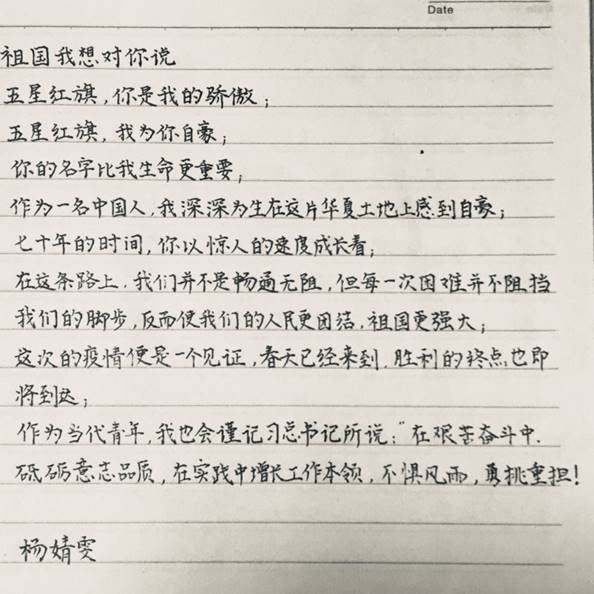 Date
祖国我想对你说
五星红旗，你是我的骄傲；
五星红旗，我为你自豪；
你的名字比我生命更重要；
作为一名中国人，我深深为生在这片华夏土地上感到自豪；
七十年的时间，你以惊人的速度成长着；
在这条路上，我们并不是畅通无阻，但每一次困难并不阻挡
我们的脚步，反而使我们的人民更团结，祖国更强大；
这次的疫情便是一个见证，春天已经来到，胜利的终点也即
将到达；
作为当代青年，我也会谨记习总书记所说：“在艰苦奋斗中．
砥砺意志品质，在实践中增长工作本领，不惧风雨，勇挑重担！
杨婧雯